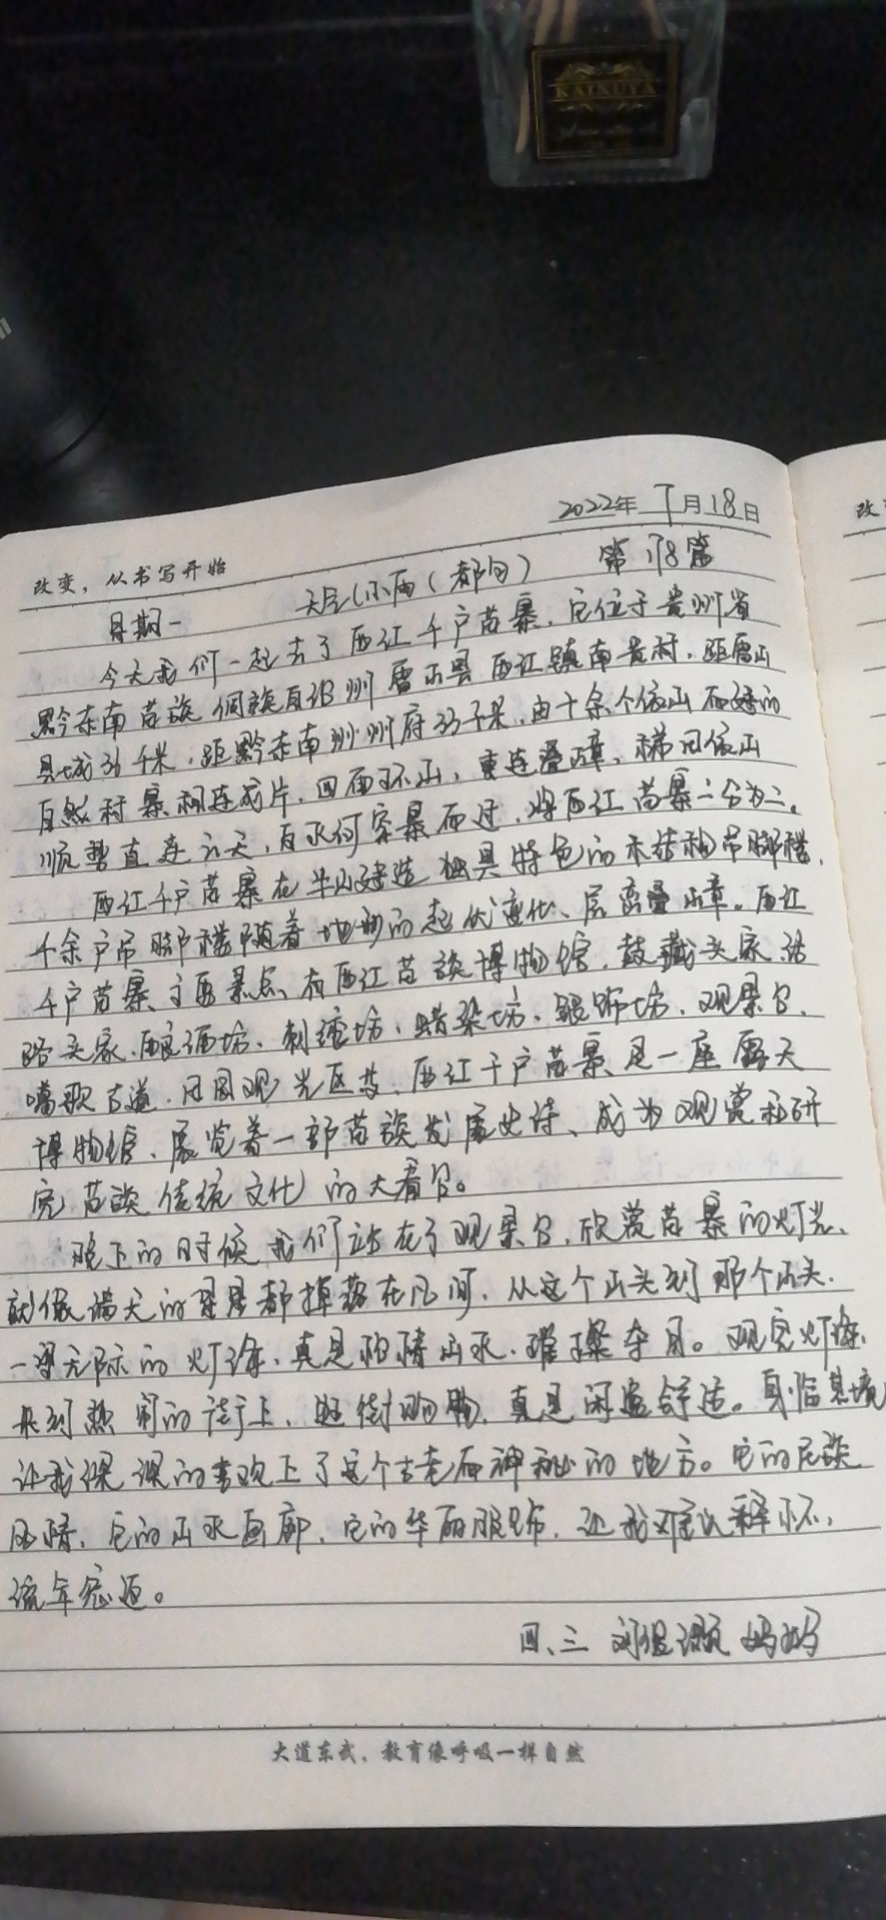 KAINUYA
2022年 7月18日
改变，从书写开始
改
星期一 天气小雨（都匀） 第178篇
今天我们一起去了西江千户苗寨，它位于贵州省
黔东南苗族侗族自治州雷山县西江镇南贵村，距雷山
县城36千米，距黔东南州州府33千米，由十余个依山而建的
自然村寨相连成片，四面环山，重连叠嶂，梯田依山
顺势直连云天，白水河穿寨而过，将西江苗寨一分为二。
西江千户苗寨在半山建造独具特色的木结构吊脚楼，
千余户吊脚楼随着地形的起伏变化、层峦叠嶂。西江
千户苗寨主要景点有西江苗族博物馆，鼓藏头家、活
路头家、酿酒坊、刺绣坊、蜡染坊、银饰坊，观景台，
嘎歌古道，田园观光区等，西江千户苗寨是一座露天
博物馆、展览着一部苗族发展史诗、成为观赏和研
究苗族传统文化的大看台。
晚上的时候我们站在了观景台，欣赏苗寨的灯光、
就像满天的星星都掉落在凡间，从这个山头到那个山头，
一望无际的灯海，真是怡情山水，璀璨夺目。观完灯海，
来到热闹的街上，逛街购物，真是闲逸舒适。身临其境
让我深深的喜欢上了这个古老而神秘的地方。它的民族
风情，它的山水画廊，它的华丽服饰，让我难以释怀，
流年忘返。
四、三 妈妈
大道东武，教育像呼吸一样自然